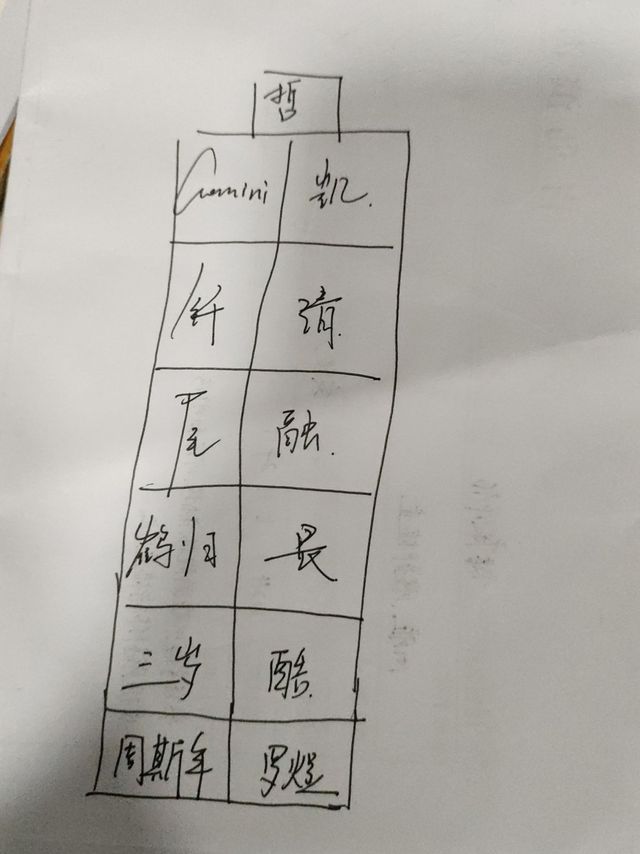 哲
Gemini 凯.
纤 清.
尾 融.
鹤归 最
三岁 酷.
周斯年 罗煜